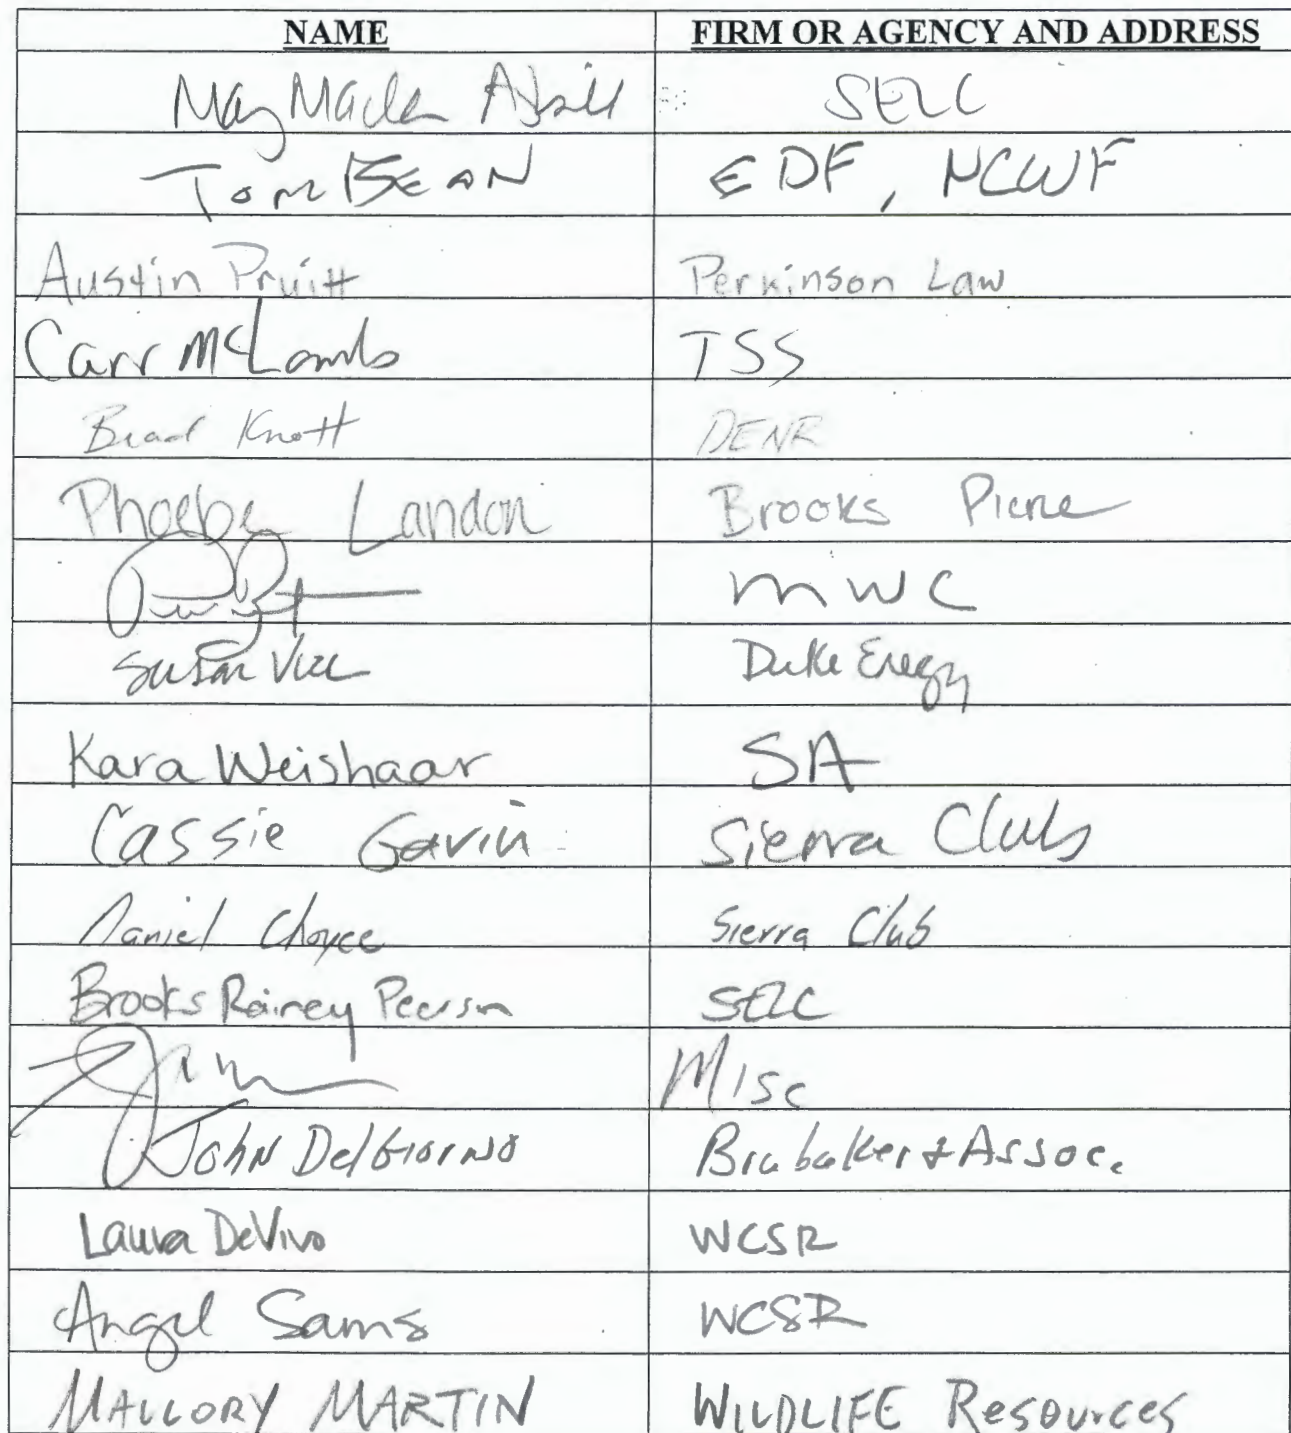 NAME FIRM OR AGENCY AND ADDRESS
SELC
Tom BEAN EDF, NCWF
Austin Pruitt Perkinson Law
Carr McLamb TSS
Brad Knott DENR
Phoebe Landon Brooks Pierce
MWC
Susan Vick Duke Energy
Kara Weishaar SA
Cassie Gavin Sierra Club
Daniel Choyce Sierra Club
Brooks Rainey Pearson SELC
Misc
John DelGiorno Brubaker & Assoc.
Laura DeVivo WCSR
Angel Sams WCSR
MALLORY MARTIN WILDLIFE Resources